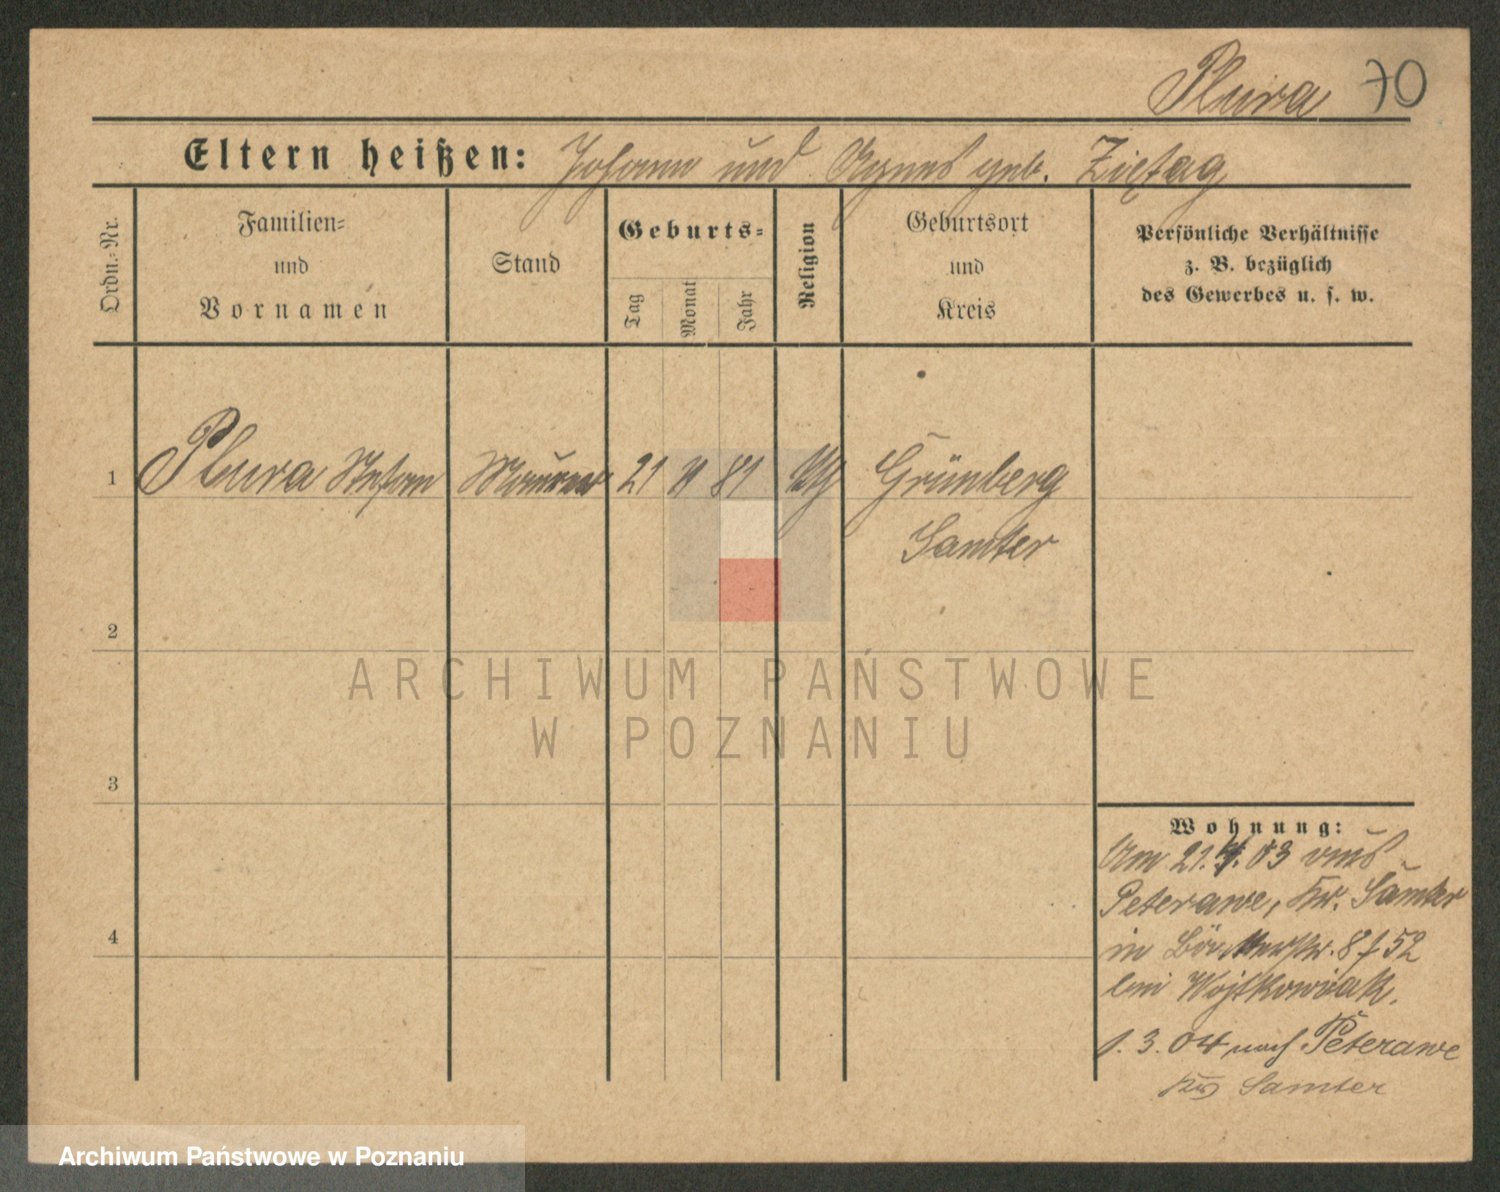 Plura 70
Eltern heißen: Johann und Agnes geb. Zietag
Ordn.-Nr.
Familien-
und
Vornamen
Stand
Geburts-
Tag
Monat
Jahr
Religion
Geburtsort
und
Kreis
Persönliche Verhältnisse
z. B. bezüglich
des Gewerbes u. s. w.
1 Plura Stefan Maurer 21 81 Grünberg
Samter
2
3
4
ARCHIWUM PAŃSTWOWE
W POZNANIU
Wohnung:
Am 21.4.03 aus
Peterawe, Kr. Samter
in 8 f 52
bei Wojtkowiak.
1.3.04 nach Peterawe
Kr. Samter
Archiwum Państwowe w Poznaniu